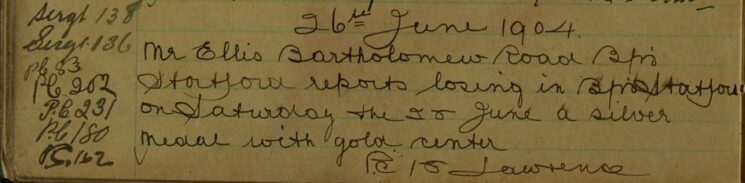 Sergt 138
Sergt. 136
P.C. 83
P.C. 202
P.C. 231
P.C. 180
P.C. 162
26th June 1904.
Mr Ellis Bartholomew Road Bp's
Stortford reports losing in Bp's Stortford
on Saturday the 25 June a silver
medal with gold center
P.C. 15 Lawrence